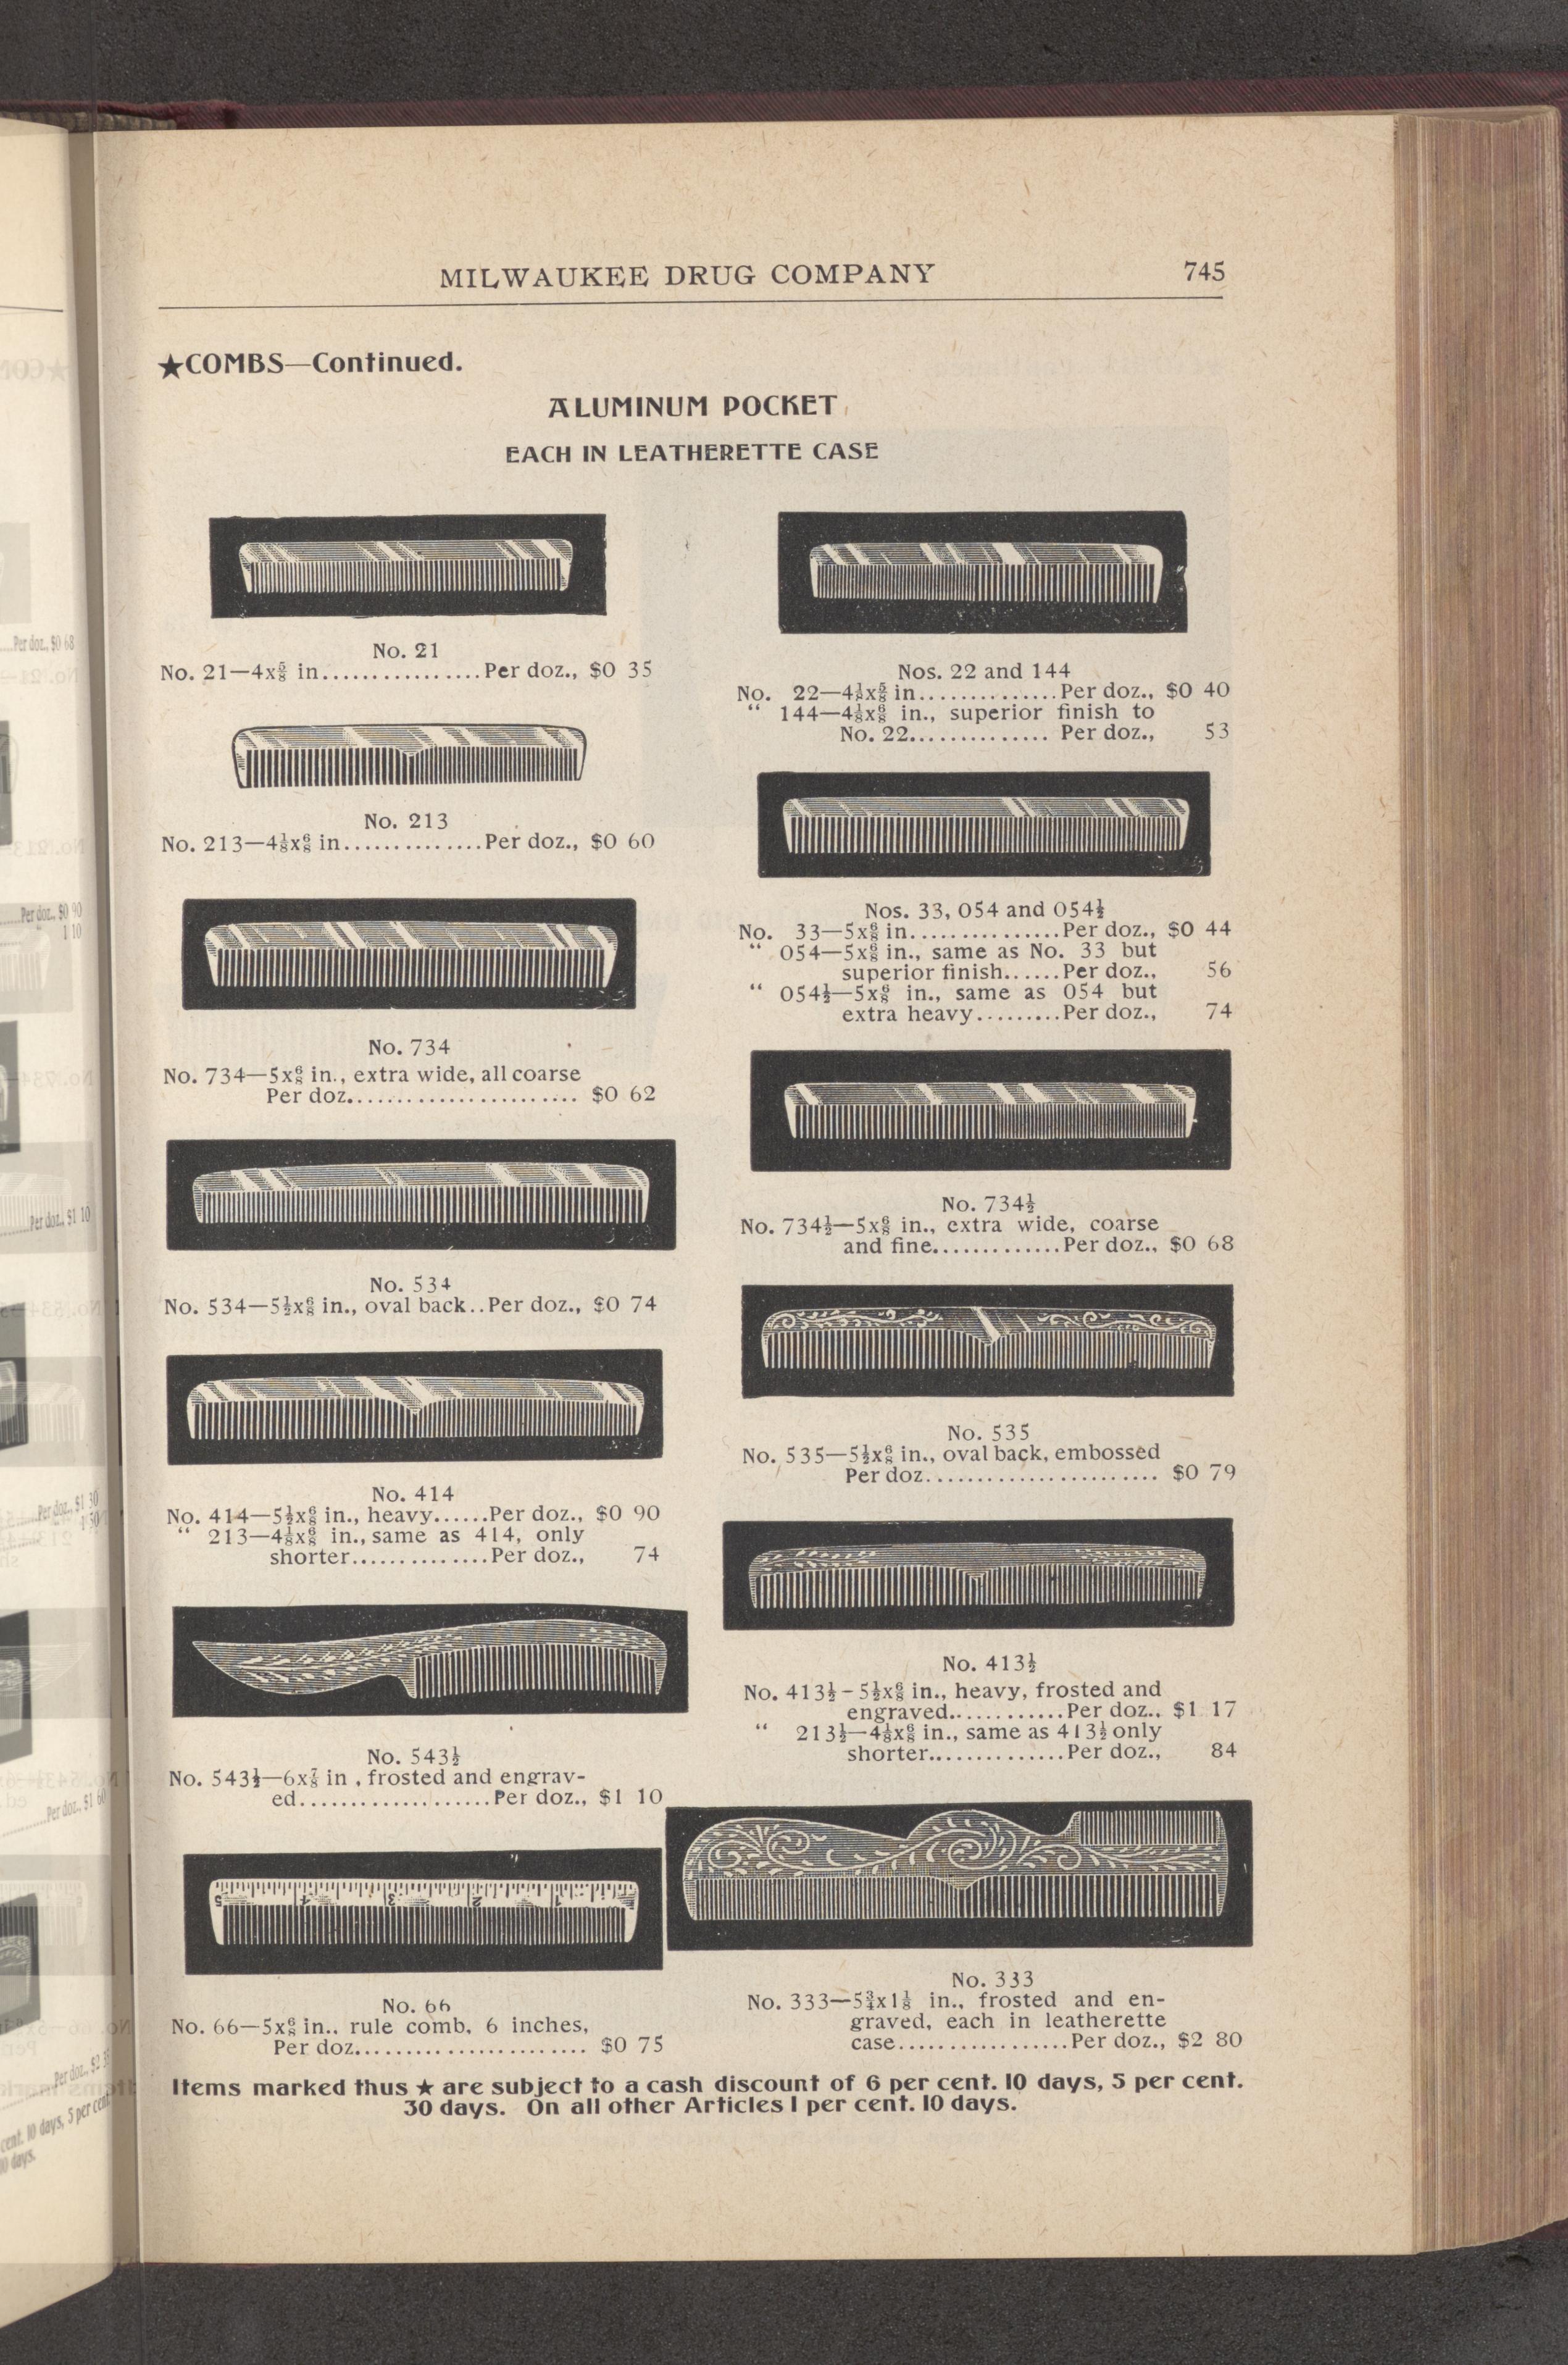 MILWAUKEE DRUG COMPANY 745
★COMBS—Continued.
ALUMINUM POCKET
EACH IN LEATHERETTE CASE
No. 21
No. 21—4x⅝ in................Per doz., $0 35
No. 213
No. 213—4⅛x6/8 in..............Per doz., $0 60
No. 734
No. 734—5x6/8 in., extra wide, all coarse
Per doz....................... $0 62
No. 534
No. 534—5½x6/8 in., oval back..Per doz., $0 74
No. 414
No. 414—5½x6/8 in., heavy......Per doz., $0 90
“ 213—4⅛x6/8 in., same as 414, only
shorter..............Per doz., 74
No. 543½
No. 543½—6x⅞ in , frosted and engrav-
ed...................Per doz., $1 10
5 4 3 2 1
No. 66
No. 66—5x6/8 in.. rule comb, 6 inches,
Per doz....................... $0 75
Nos. 22 and 144
No. 22—4⅛x⅝ in..............Per doz., $0 40
“ 144—4⅛x6/8 in., superior finish to
No. 22.............. Per doz., 53
Nos. 33, 054 and 054½
No. 33—5x6/8 in...............Per doz., $0 44
“ 054—5x6/8 in., same as No. 33 but
superior finish......Per doz., 56
“ 054½—5x6/8 in., same as 054 but
extra heavy.........Per doz., 74
No. 734½
No. 734½—5x6/8 in., extra wide, coarse
and fine.............Per doz., $0 68
No. 535
No. 535—5½x6/8 in., oval back, embossed
Per doz........................ $0 79
No. 413½
No. 413½-5½x6/8 in., heavy, frosted and
engraved............Per doz.. $1 17
“ 213½—4⅛x6/8 in., same as 413½ only
shorter..............Per doz., 84
No. 333
No. 333—5¾x1⅛ in., frosted and en-
graved, each in leatherette
case.................Per doz., $2 80
Items marked thus ★ are subject to a cash discount of 6 per cent. 10 days, 5 per cent.
30 days. On all other Articles 1 per cent. 10 days.